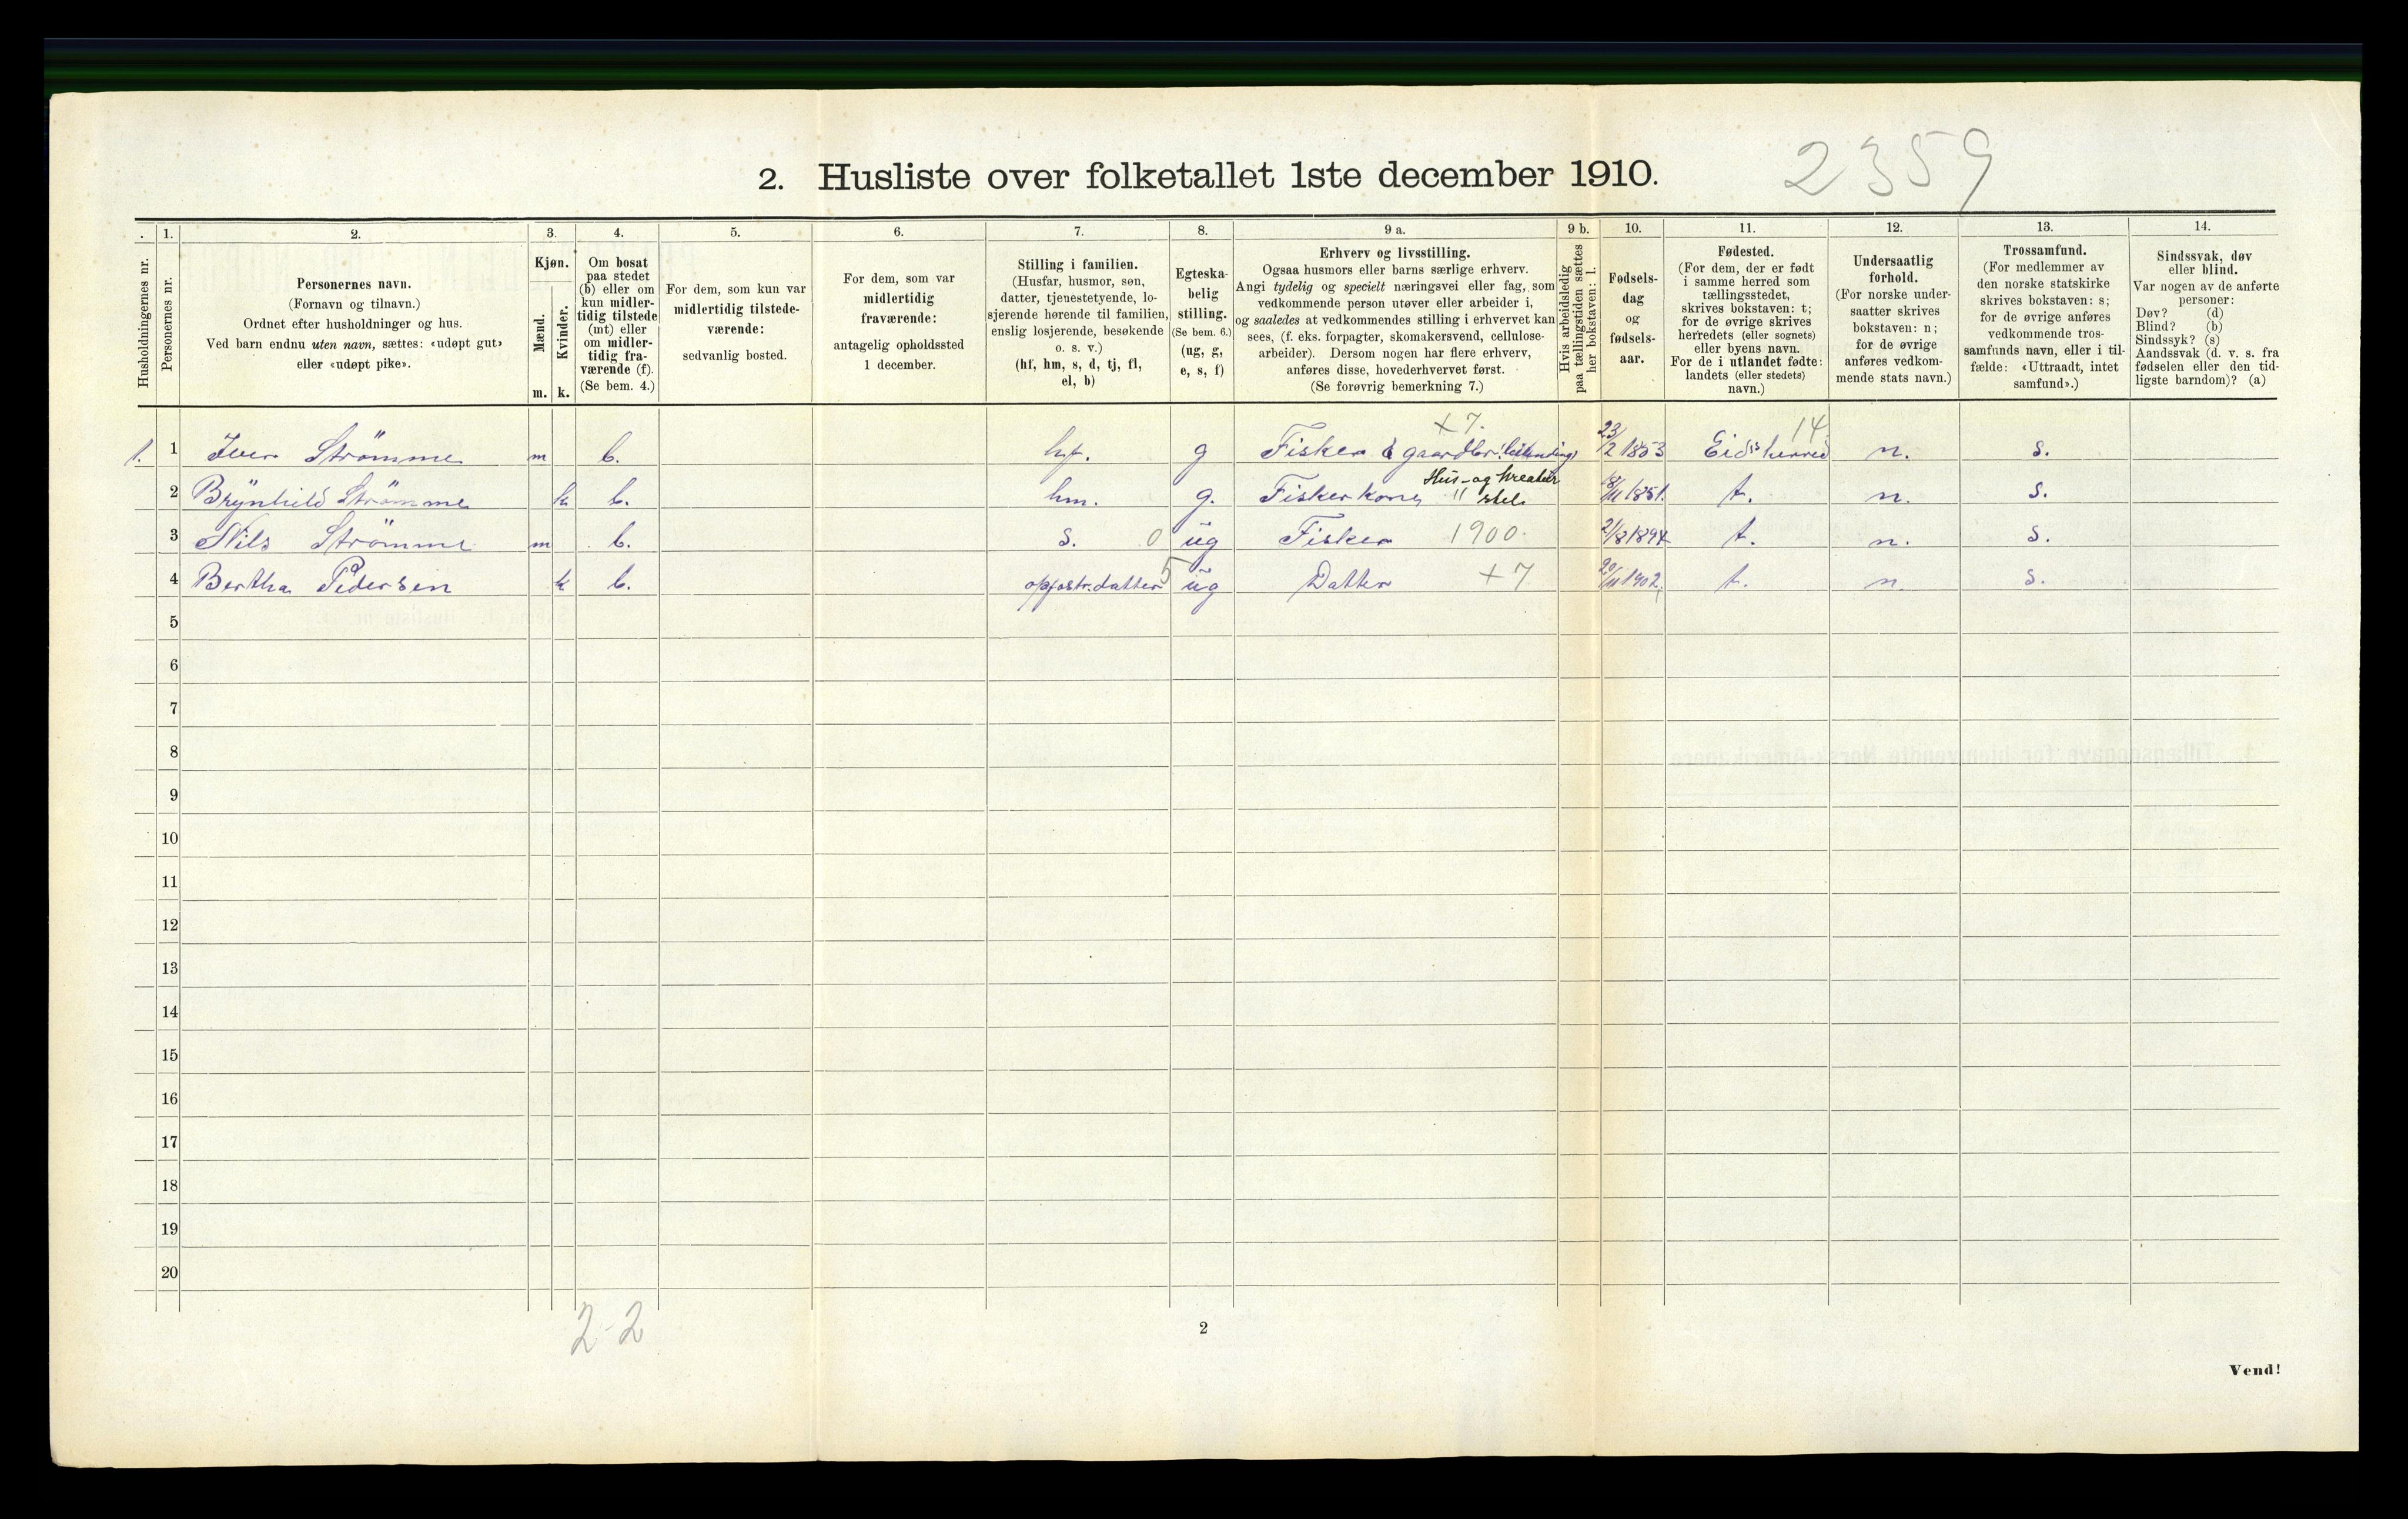 2. Husliste over folketallet 1ste december 1910.
2359
. 1. 2. 3. 4. 5. 6. 7. 8. 9 a. 9 b. 10. 11. 12. 13. 14.
Husholdningernes nr.
Personernes nr.
Personernes navn.
(Fornavn og tilnavn.)
Ordnet efter husholdninger og hus.
Ved barn endnu uten navn, sættes: «udøpt gut»
eller «udøpt pike».
Kjøn.
Mænd.
Kvinder.
m. k.
Om bosat
paa stedet
(b) eller om
kun midler-
tidig tilstede
(mt) eller
om midler-
tidig fra-
værende (f).
(Se bem. 4.)
For dem, som kun var
midlertidig tilstede-
værende:
sedvanlig bosted.
For dem, som var
midlertidig
fraværende:
antagelig opholdssted
1 december.
Stilling i familien.
(Husfar, husmor, søn,
datter, tjenestetyende, lo-
sjerende hørende til familien,
enslig losjerende, besøkende
o. s. v.)
(hf, hm, s, d, tj, fl,
el, b)
Egteska-
belig
stilling.
(Se bem. 6.)
(ug, g,
e, s, f)
Erhverv og livsstilling.
Ogsaa husmors eller barns særlige erhverv.
Angi tydelig og specielt næringsvei eller fag, som
vedkommende person utøver eller arbeider i,
og saaledes at vedkommendes stilling i erhvervet kan
sees, (f. eks. forpagter, skomakersvend, cellulose-
arbeider). Dersom nogen har flere erhverv,
anføres disse, hovederhvervet først.
(Se forøvrig bemerkning 7.)
Hvis arbeidsledig
paa tællingstiden sættes
her bokstaven: l.
Fødsels-
dag
og
fødsels-
aar.
Fødested.
(For dem, der er født
i samme herred som
tællingsstedet,
skrives bokstaven: t;
for de øvrige skrives
herredets (eller sognets)
eller byens navn.
For de i utlandet fødte:
landets (eller stedets)
navn.)
Undersaatlig
forhold.
(For norske under-
saatter skrives
bokstaven: n;
for de øvrige
anføres vedkom-
mende stats navn.)
Trossamfund.
(For medlemmer av
den norske statskirke
skrives bokstaven: s;
for de øvrige anføres
vedkommende tros-
samfunds navn, eller i til-
fælde: «Uttraadt, intet
samfund».)
Sindssvak, døv
eller blind.
Var nogen av de anførte
personer:
Døv? (d)
Blind? (b)
Sindssyk? (s)
Aandssvak (d. v. s. fra
fødselen eller den tid-
ligste barndom)? (a)
+7. 14.
1. 1 Iver Strömme m b. hf. g Fisker & gaardbr. 23/2 1853 Eids herred n. s.
Hus- og kreatur
2 Brynhild Strömme k b. hm. g. Fiskerkone " stel 1851. t. n. s.
3 Nils Strömme m b. s. 0 ug Fisker 1900. 21/8 1894 t. n. s.
4 Bertha Pedersen k b. opfostr. datter 5 ug Datter +7 20/11 1902. t. n. s.
5
6
7
8
9
10
11
12
13
14
15
16
17
18
19
20
2-2
2
Vend!